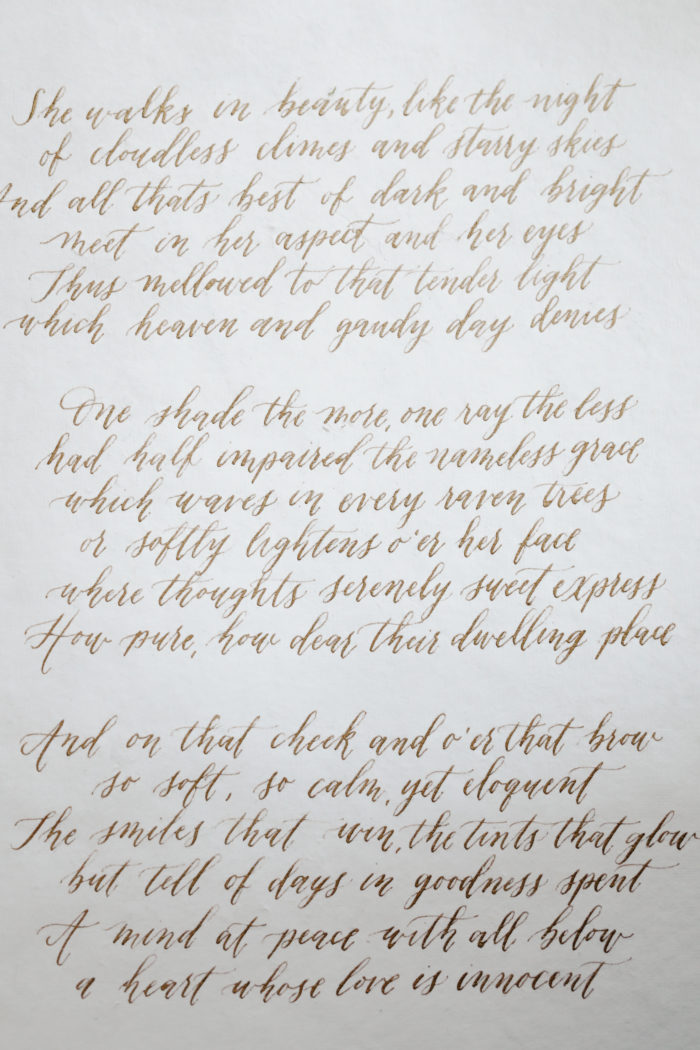 She walks in beauty, like the night
of cloudless climes and starry skies
And all thats best of dark and bright
meet in her aspect and her eyes
Thus mellowed to that tender light
which heaven and gaudy day denies
One shade the more, one ray the less
had half impaired the nameless grace
which waves in every raven tress
or softly lightens o'er her face
where thoughts serenely sweet express
How pure, how dear their dwelling place
And on that cheek and o'er that brow
so soft, so calm, yet eloquent
The smiles that win, the tints that glow
but tell of days in goodness spent
A mind at peace with all below
a heart whose love is innocent